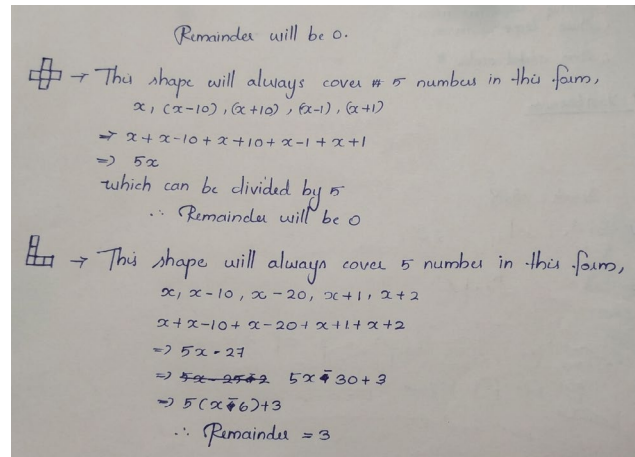 Remainder will be 0.
→ This shape will always cover 5 number in this form,
x, (x-10), (x+10), (x-1), (x+1)
⇒ x + x-10 + x+10 + x-1 + x+1
⇒ 5x
which can be divided by 5
∴ Remainder will be 0
→ This shape will always cover 5 number in this form,
x, x-10, x-20, x+1, x+2
x+x-10+x-20+x+1+x+2
⇒ 5x-27
⇒ 5x-25+2 5x-30+3
⇒ 5(x-6)+3
∴ Remainder = 3